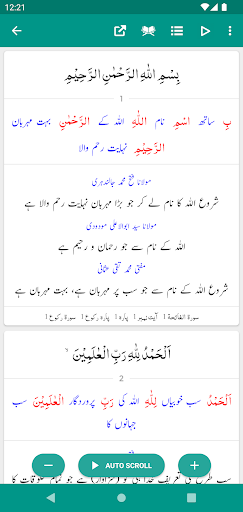 12:21
بِسْمِ اللّٰهِ الرَّحْمٰنِ الرَّحِيْمِ
1
بِ ساتھ اسْمِ نام اللّٰهِ اللہ کے الرَّحْمٰنِ بہت مہربان
الرَّحِيْمِ نہایت رحم والا
مولانا فتح محمد جالندہری
شروع اللہ کا نام لے کر جو بڑا مہربان نہایت رحم والا ہے
مولانا سید ابوالاعلی مودودی
اللہ کے نام سے جو رحمان و رحیم ہے
مفتی محمد تقی عثمانی
شروع اللہ کے نام سے جو سب پر مہربان ہے، بہت مہربان ہے
سورة الفاتحة 1 آیت نمبر 1 پارہ 1 پارہ رکوع 1 سورة رکوع 1
اَلْحَمْدُ لِلّٰهِ رَبِّ الْعٰلَمِيْنَ
2
اَلْحَمْدُ سب خوبیاں لِلّٰهِ اللہ کی رَبِّ پروردگار الْعٰلَمِيْنَ سب
جہانوں کا
AUTO SCROLL